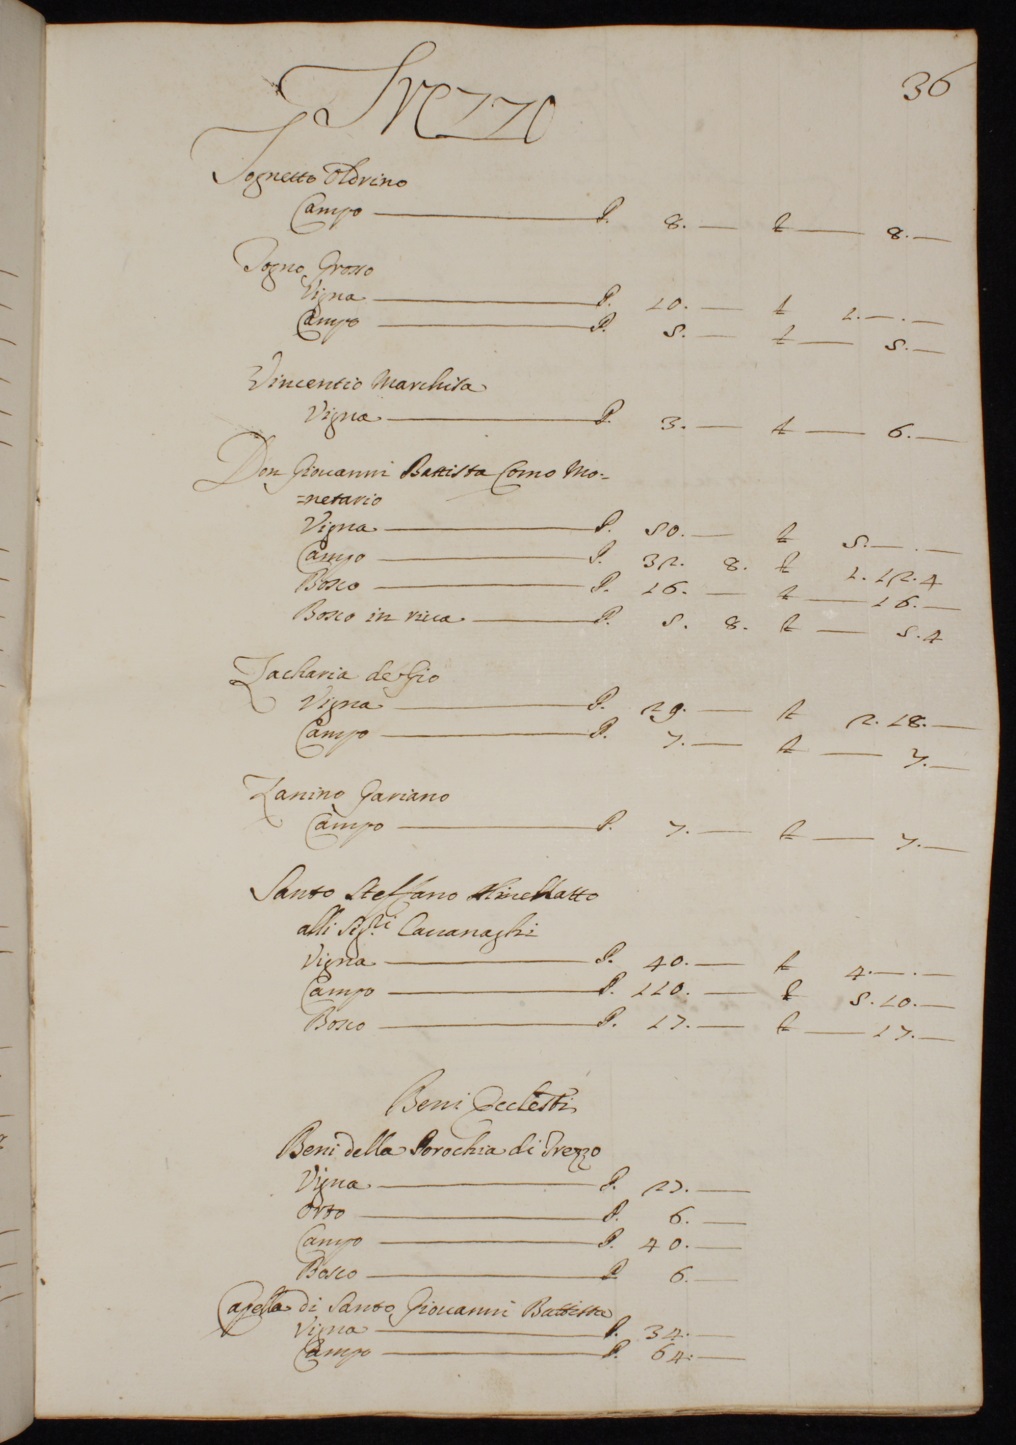 36
Trezzo
Tognetto Oldrino
Campo — P. 8. — £ — 8. —
Togno Grosso
Vigna — P. 10. — £ 1. — . —
Campo — P. 5. — £ — 5. —
Vincentio Marchisa
Vigna — P. 3. — £ — 6. —
Don Giovanni Battista Como Mo=
=netario
Vigna — P. 50. — £ 5. — . —
Campo — P. 32. 8. £ 1. 12. 4
Bosco — P. 16. — £ — 16. —
Bosco in riva — P. 5. 8. £ — 5. 4
Zacharia de Gio
Vigna — P. 29. — £ 2. 18. —
Campo — P. 7. — £ — 7. —
Zanino Gariano
Campo — P. 7. — £ — 7. —
Santo Steffano
alli Sig.ri Cavanaghi
Vigna — P. 40. — £ 4. — . —
Campo — P. 110. — £ 5. 10. —
Bosco — P. 17. — £ — 17. —
Beni Ecclesti
Beni della Parochia di Trezzo
Vigna — P. 27. —
Orto — P. 6. —
Campo — P. 40. —
Bosco — P. 6. —
Capella di Santo Giovanni Battista
Vigna — P. 34. —
Campo — P. 64. —